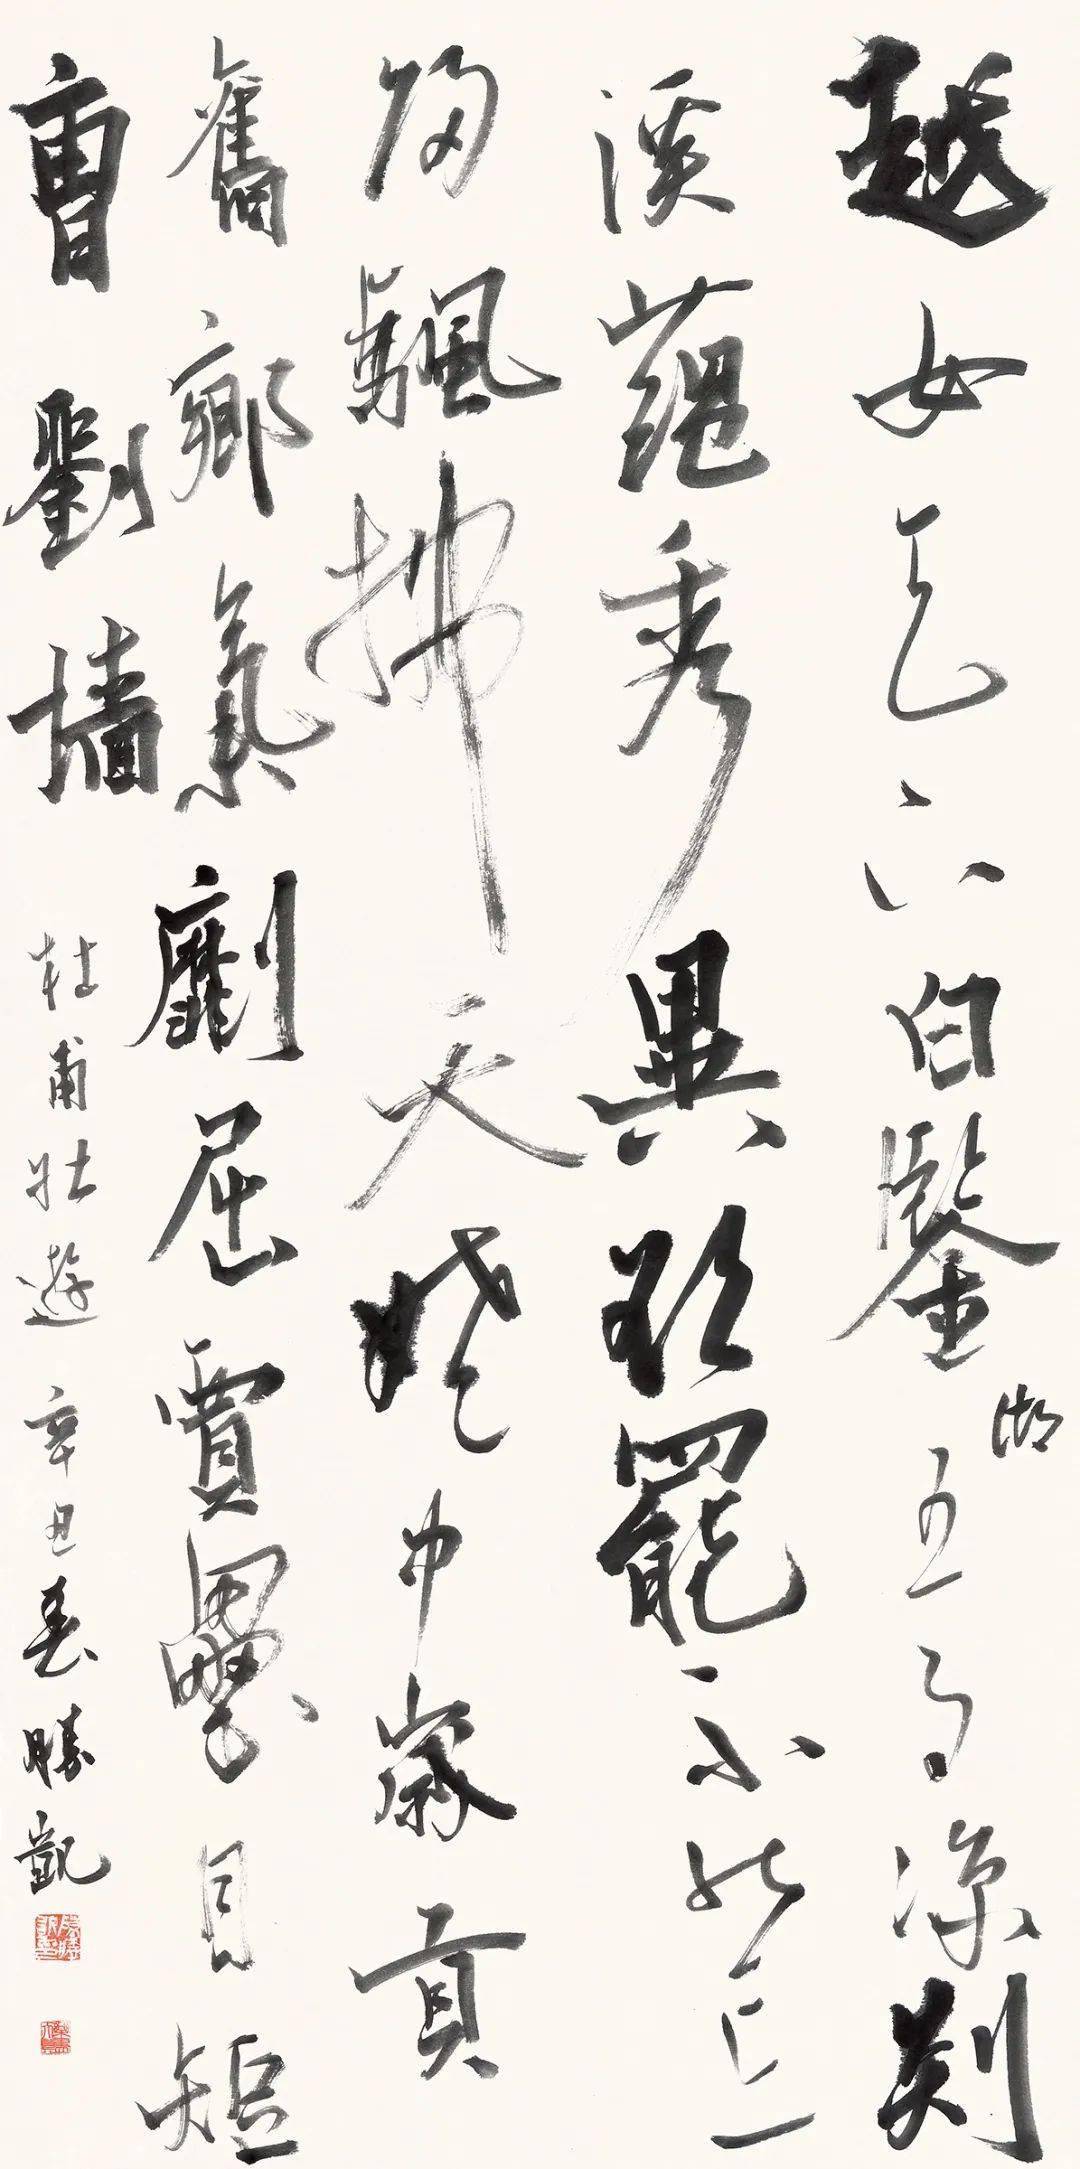 越女天下白鑒湖五月涼剡
溪蘊秀異欲罷不能忘
歸颿拂天姥中歲貢
舊鄉氣劘屈賈壘目短
曹劉墻
杜甫壯遊 辛丑春勝凱